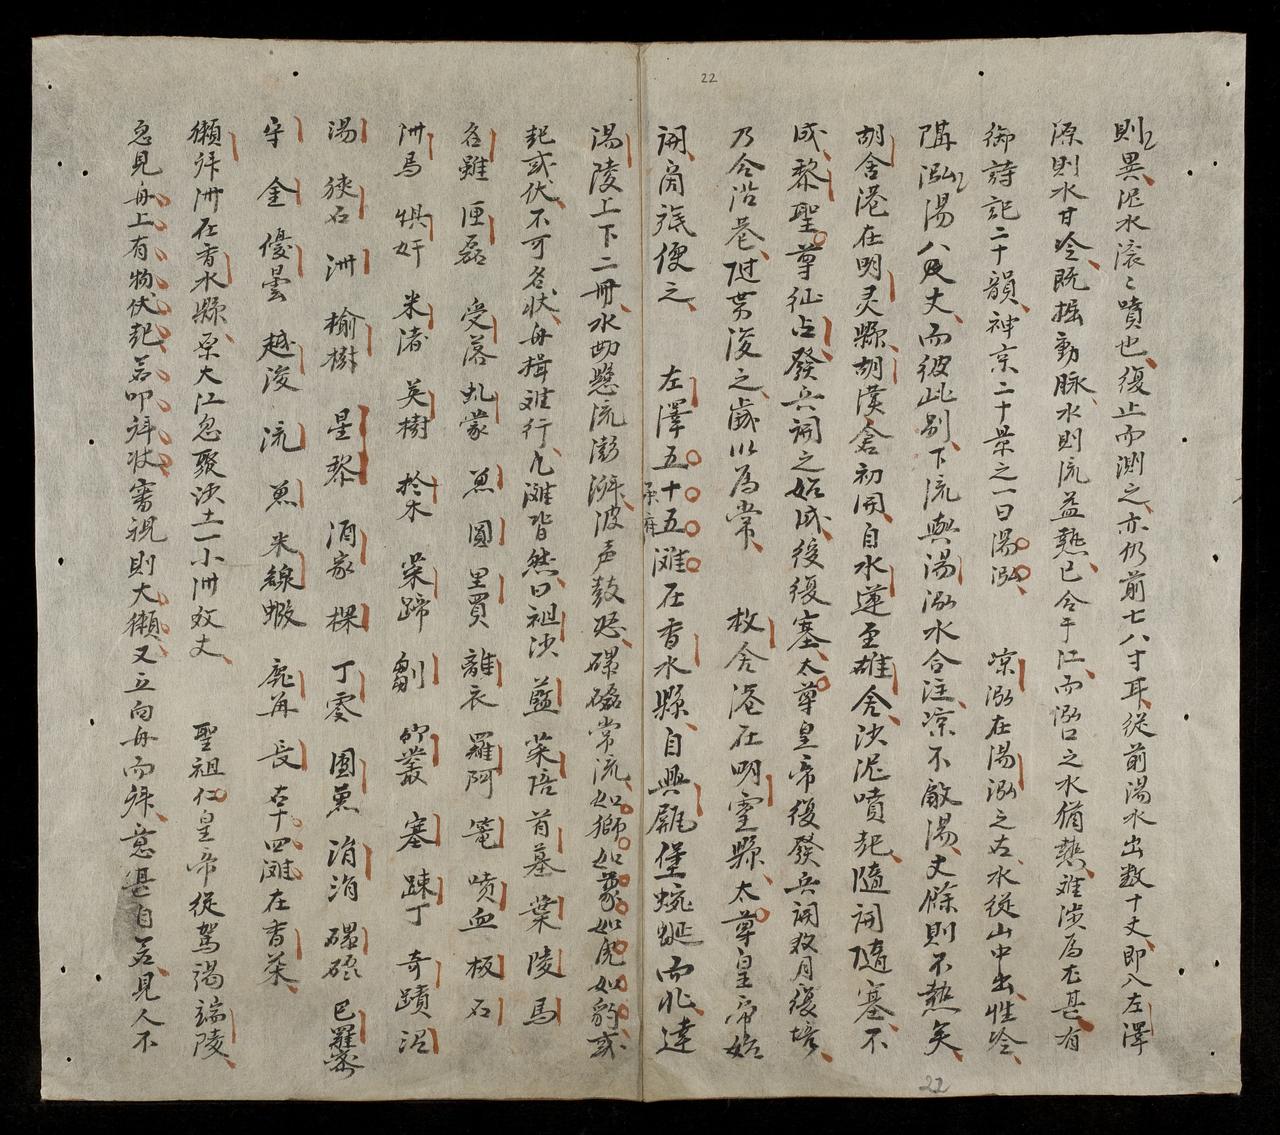 22
則異泥水滚〻噴也復止而測之亦仍前七八寸耳從前湯水出数十丈即入左澤
源則水甘冷既掘動脉水則流益熱已令于江而泓口之水猶熱难涉為尤甚有
御詩記二十韻神京二十景之一曰湯泓 凉泓在湯泓之右水從山中出性冷
隣泓湯八尺丈而彼此别下流與湯泓水合注凉不敵湯丈餘則不熱矣
胡舍港在明灵縣胡漢舍初開自水蓮至雄舍沙泥噴起隨開隨塞不
成黎聖尊征占發兵開之始成後復塞太尊皇帝復發兵開数月復塔
乃令沿巷陡貫浚之歲以為常 枚舍港在明靈縣太尊皇帝始
開商旅便之 左澤五十五灘在香水縣自興瓶堡蜿蜒而北達
湯陵上下二冊水㔜懸流澎湃波声鼓怒磥磊常流如獅如蒙如虎如豹或
起或伏不可名狀舟揖难行凢灘皆然曰祖沙 藍 菜 陪首 墓 葉 陵 馬
名雖 匣磊 受落 虬蒙 蒽 圓 里買 離衣 羅阿 篭 噴血 板石
洲馬 惧奸 米渚 英樹 於木 菜蹄 芻 竹叢 塞 踈丁 奇蹟 沼
湯 狹石 洲 榆樹 星黎 酒家 楪 丁雯 團蒽 涓涓 礧磋 巴羅蜜
守 金 優曇 越浚 流 蒽 米線蝦 鹿苒 長 本十四灘在香菜
獺拜洲在香水縣栗大江忽聚沙土一小洲数丈 聖祖仁皇帝從駕謁端陵
忽見舟上有物伏起若叩拜狀審視則大獺又立向舟而拜意甚自若見人不
22